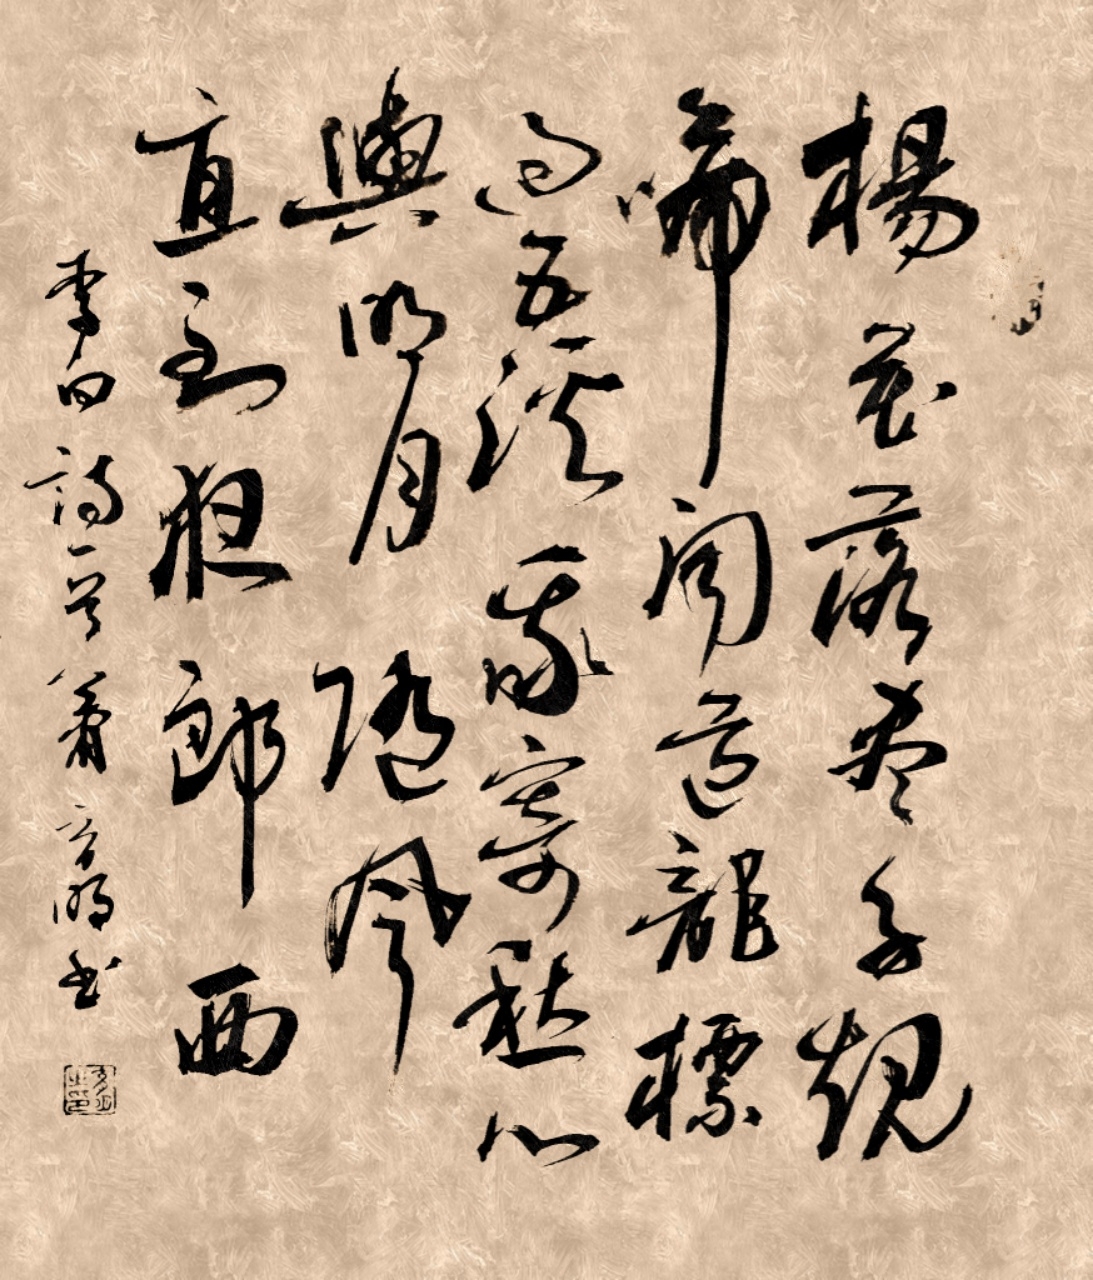 楊花落尽子規
啼聞道龍標
過五溪我寄愁心
與明月隨風
直到夜郎西
李白詩一首蕭明书